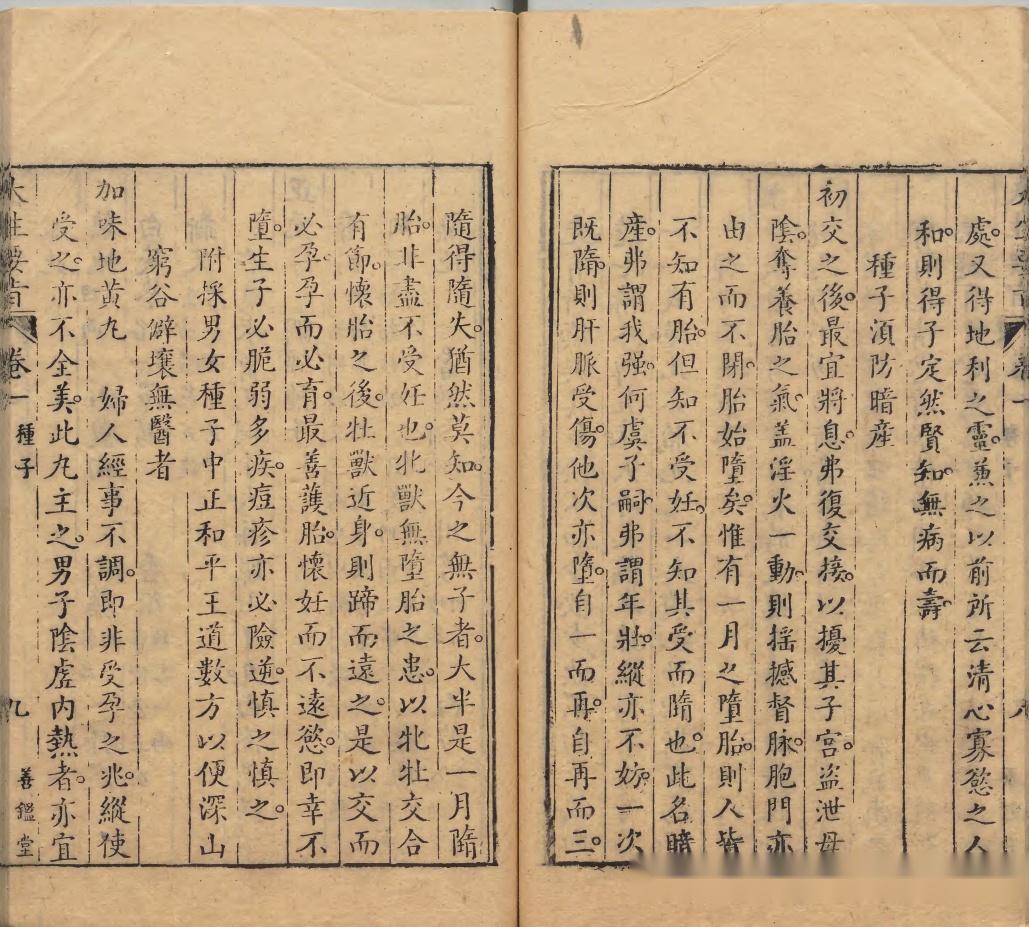 處又得地利之靈兼之以前所云清心寡慾之人
和則得子定然賢知無病而壽
種子湏防暗産
初交之後最宜將息弗復交接以擾其子宮盜泄母
陰奪養胎之氣盖淫火一動則揺撼督脉胞門亦
由之而不閉胎始墮矣惟有一月之墮胎則人皆
不知有胎但知不受妊不知其受而隋也此名暗
産弗謂我强何虞子嗣弗謂年壯縱亦不妨一次
既隋則肝脈受傷他次亦墮自一而再自再而三
隨得隨失猶然莫知今之無子者大半是一月隋
胎非盡不受妊也牝獸無墮胎之患以牝牡交合
有節懷胎之後牡獸近身則蹄而遠之是以交而
必孕孕而必育最善護胎懷妊而不遠慾即幸不
墮生子必脆弱多疾痘疹亦必險逆慎之慎之
附採男女種子中正和平王道數方以便深山
窮谷僻壤無醫者
加味地黃丸　婦人經事不調即非受孕之兆縱使
受之亦不全美此丸主之男子陰虛内熱者亦宜
卷一　種子　九　善鑑堂